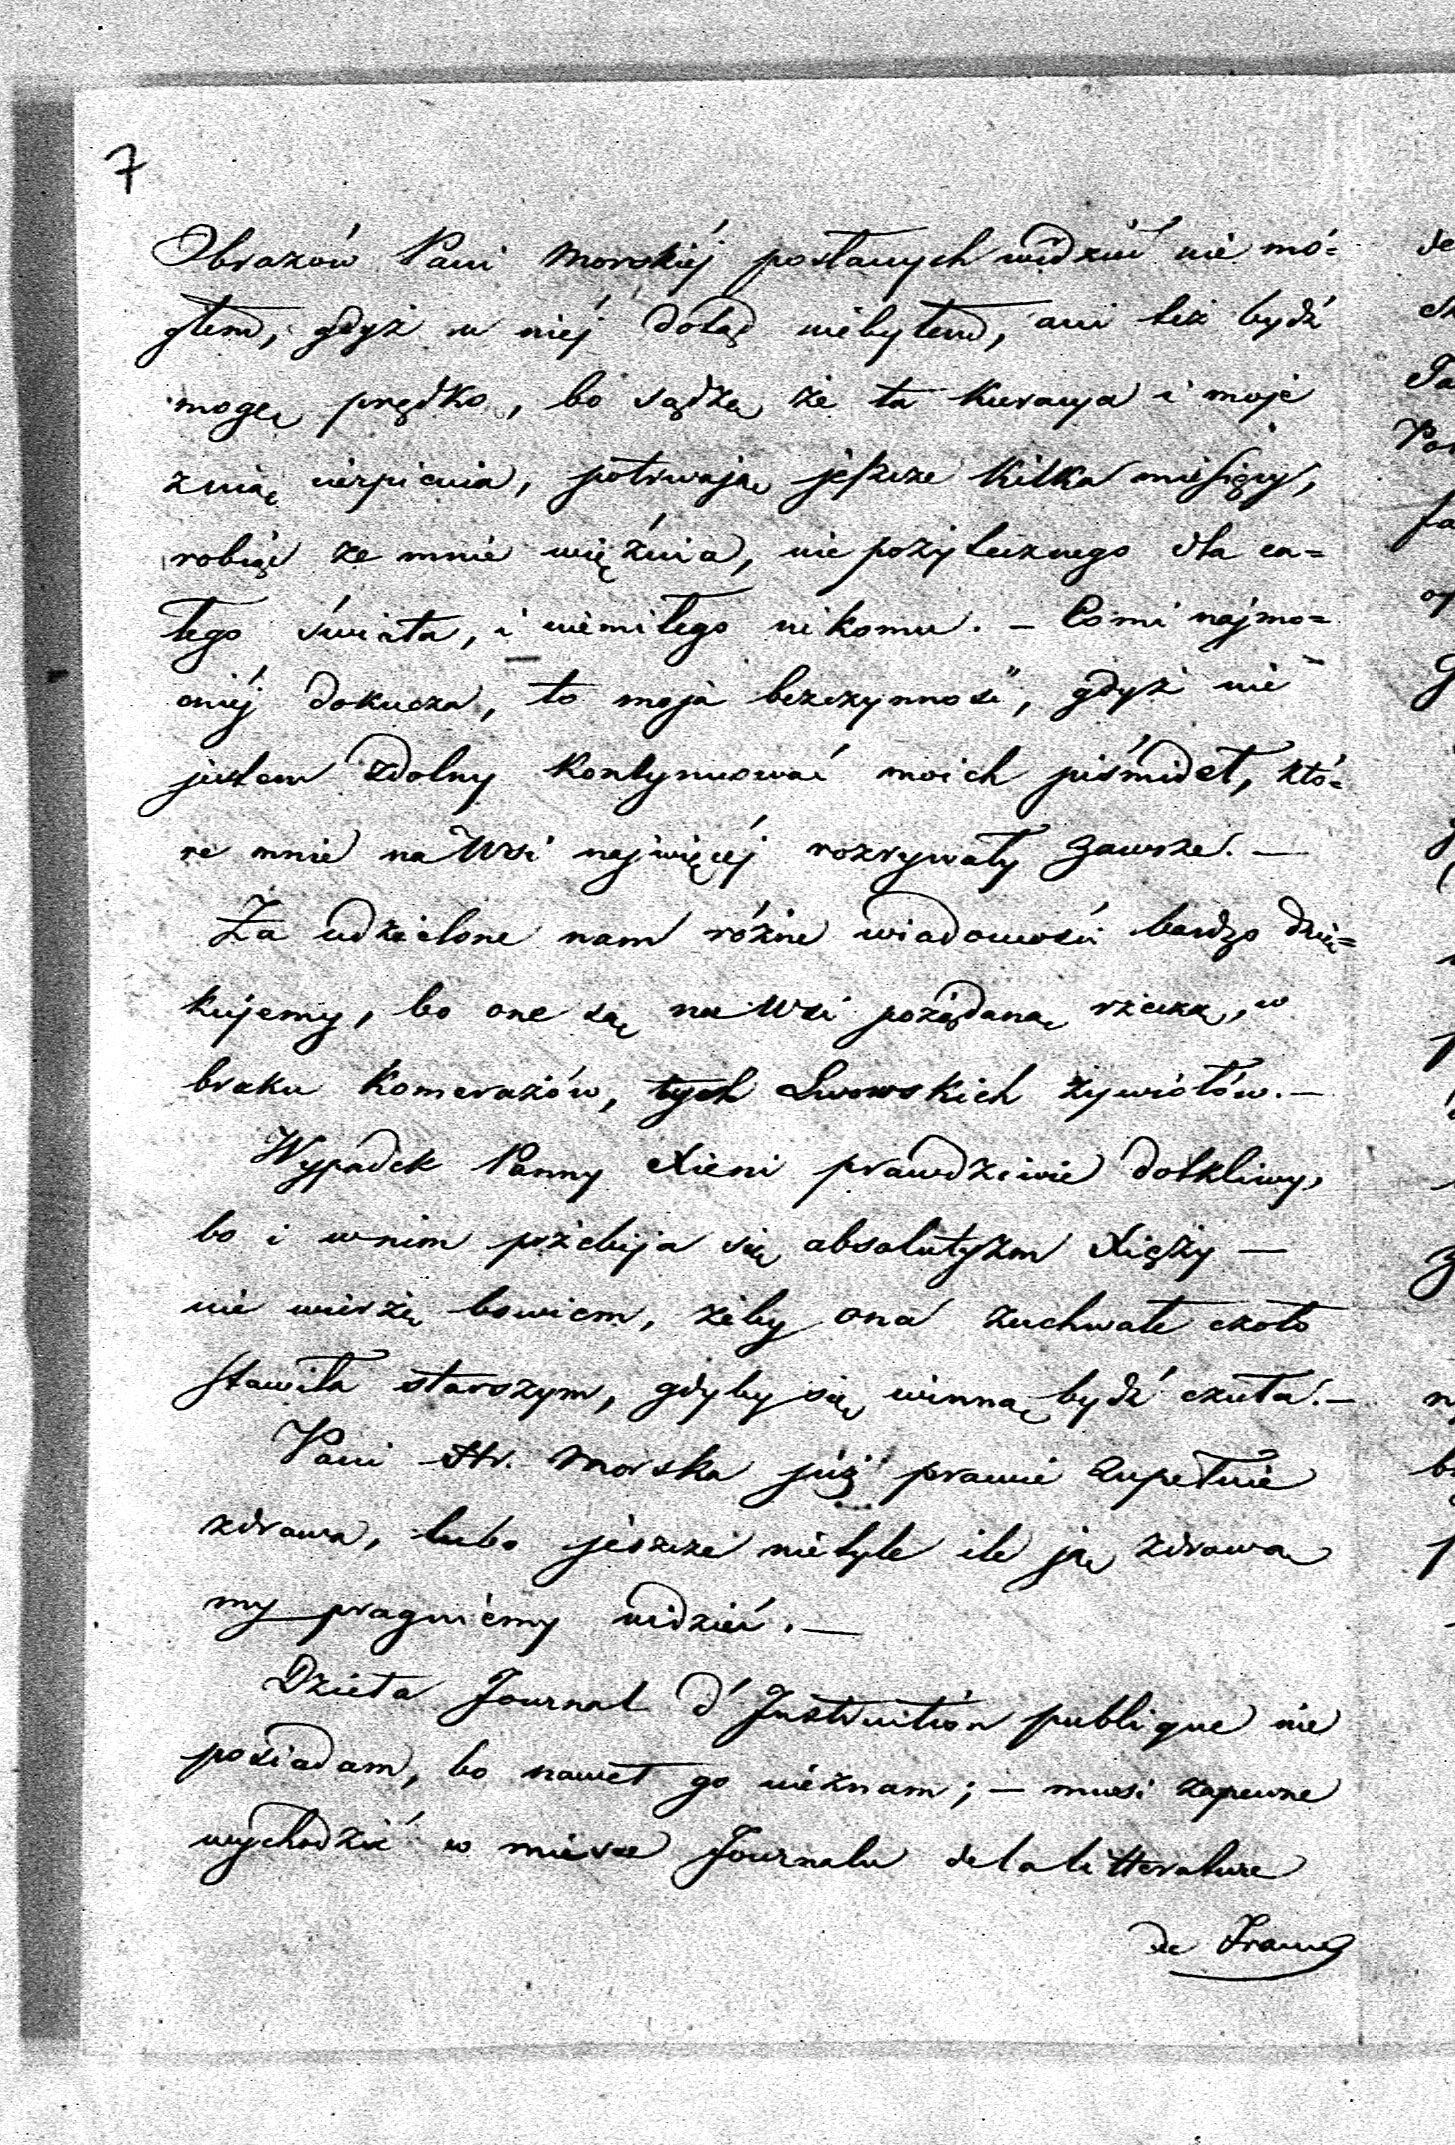 7
Obrazów Pani Morskiéj posłanych widzieć nie mó=
głem, gdyż u niéj dotąd niebyłem, ani też bydź
mogę prędko, bo sądzę że ta kuracya i moje
znią cierpienia, potrwają jeszcze kilka miesięcy,
robiąc ze mnie więźnia, nie pożytecznego dla ca=
łego świata, i niemiłego nikomu. – Co mi najmo=
cniéj dokucza, to moja bezczynność, gdyż nie
jestem zdolny kontynuować moich piśmideł, któ=
re mnie na Wsi najwięcéj rozrywały zawsze. —
Za udzielone nam różne wiadomości bardzo dzię=
kujemy, bo one są na Wsi pożądaną rzeczą, w
braku Komerażów, tych Lwowskich żywiołów. —
Wypadek Panny Xieni prawdziwie dotkliwy,
bo i wnim przebija się absolutyzm Xięży —
nie wierzę bowiem, żeby ona zuchwałe czoło
stawiła starszym, gdyby się winną bydź czuła. —
Pani Hr. Morska już prawie zupełnie
zdrowa, lubo jeszcze nietyle ile ją zdrową
my pragniemy widzieć. —
Dzieła Journal d'Instruction publique nie
posiadam, bo nawet go nieznam; – musi zapewne
wychodzić w miesce Journalu de la litterature
de France